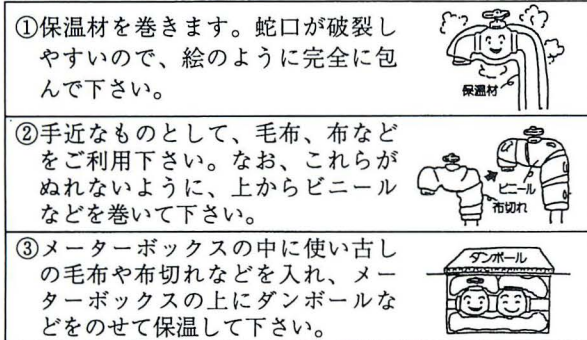 ①保温材を巻きます。蛇口が破裂し
やすいので、絵のように完全に包
んで下さい。
保温材
②手近なものとして、毛布、布など
をご利用下さい。なお、これらが
ぬれないように、上からビニール
などを巻いて下さい。
ビニール
布切れ
③メーターボックスの中に使い古し
の毛布や布切れなどを入れ、メー
ターボックスの上にダンボールな
どをのせて保温して下さい。
ダンボール